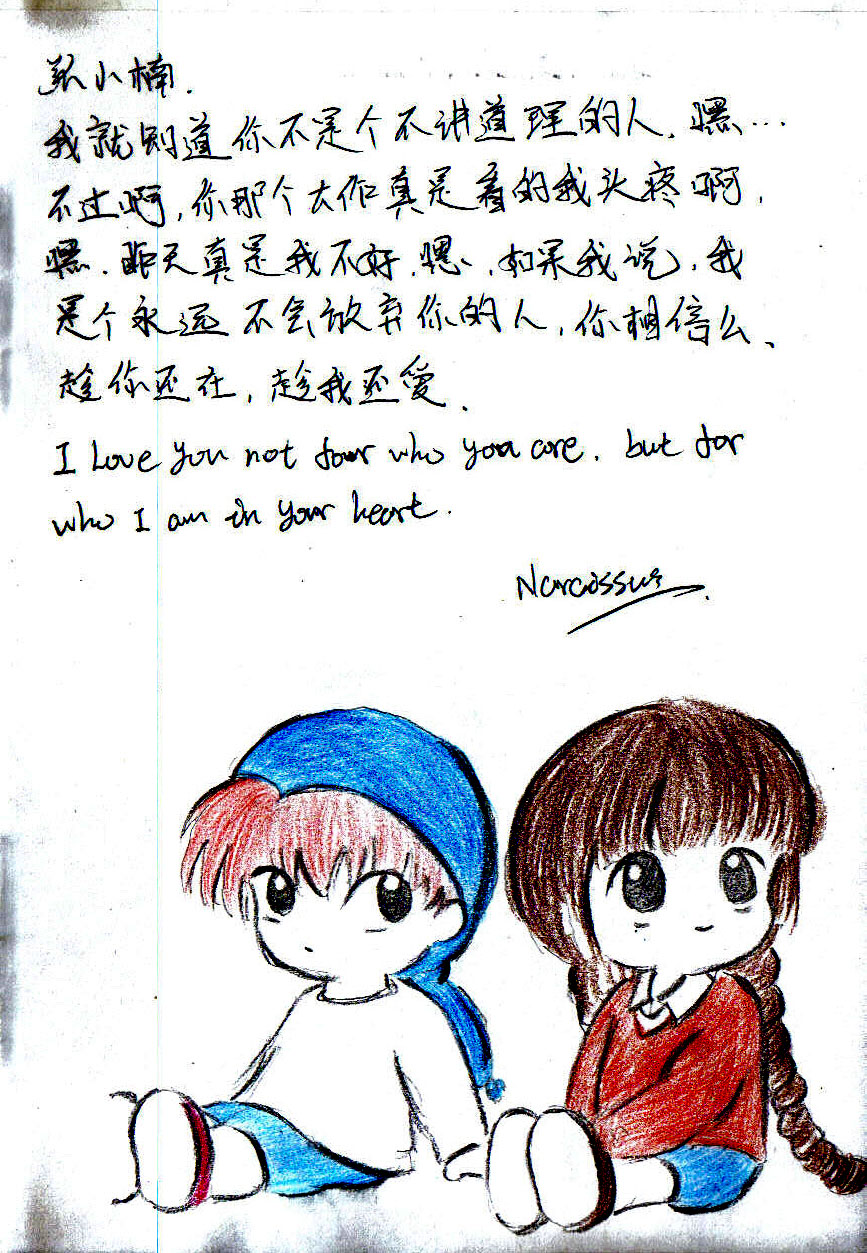 小楠.
我就知道你不是个不讲道理的人,嘿…
不过啊,你那个大作真是看的我头疼啊,
嘿.昨天真是我不好,嗯、,如果我说,我
是个永远不会放弃你的人,你相信么、
趁你还在,趁我还爱、
I Love you not for who you are, but for
who I am in your heart.
Narcissus